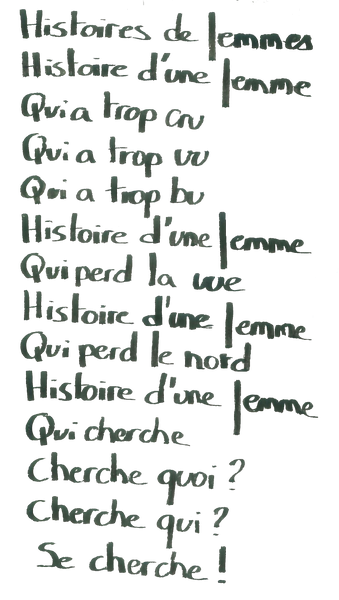 Histoires de femmes
Histoire d'une femme
Qui a trop cru
Qui a trop vu
Qui a trop bu
Histoire d'une femme
Qui perd la vue
Histoire d'une femme
Qui perd le nord
Histoire d'une femme
Qui cherche
Cherche quoi ?
Cherche qui ?
Se cherche !